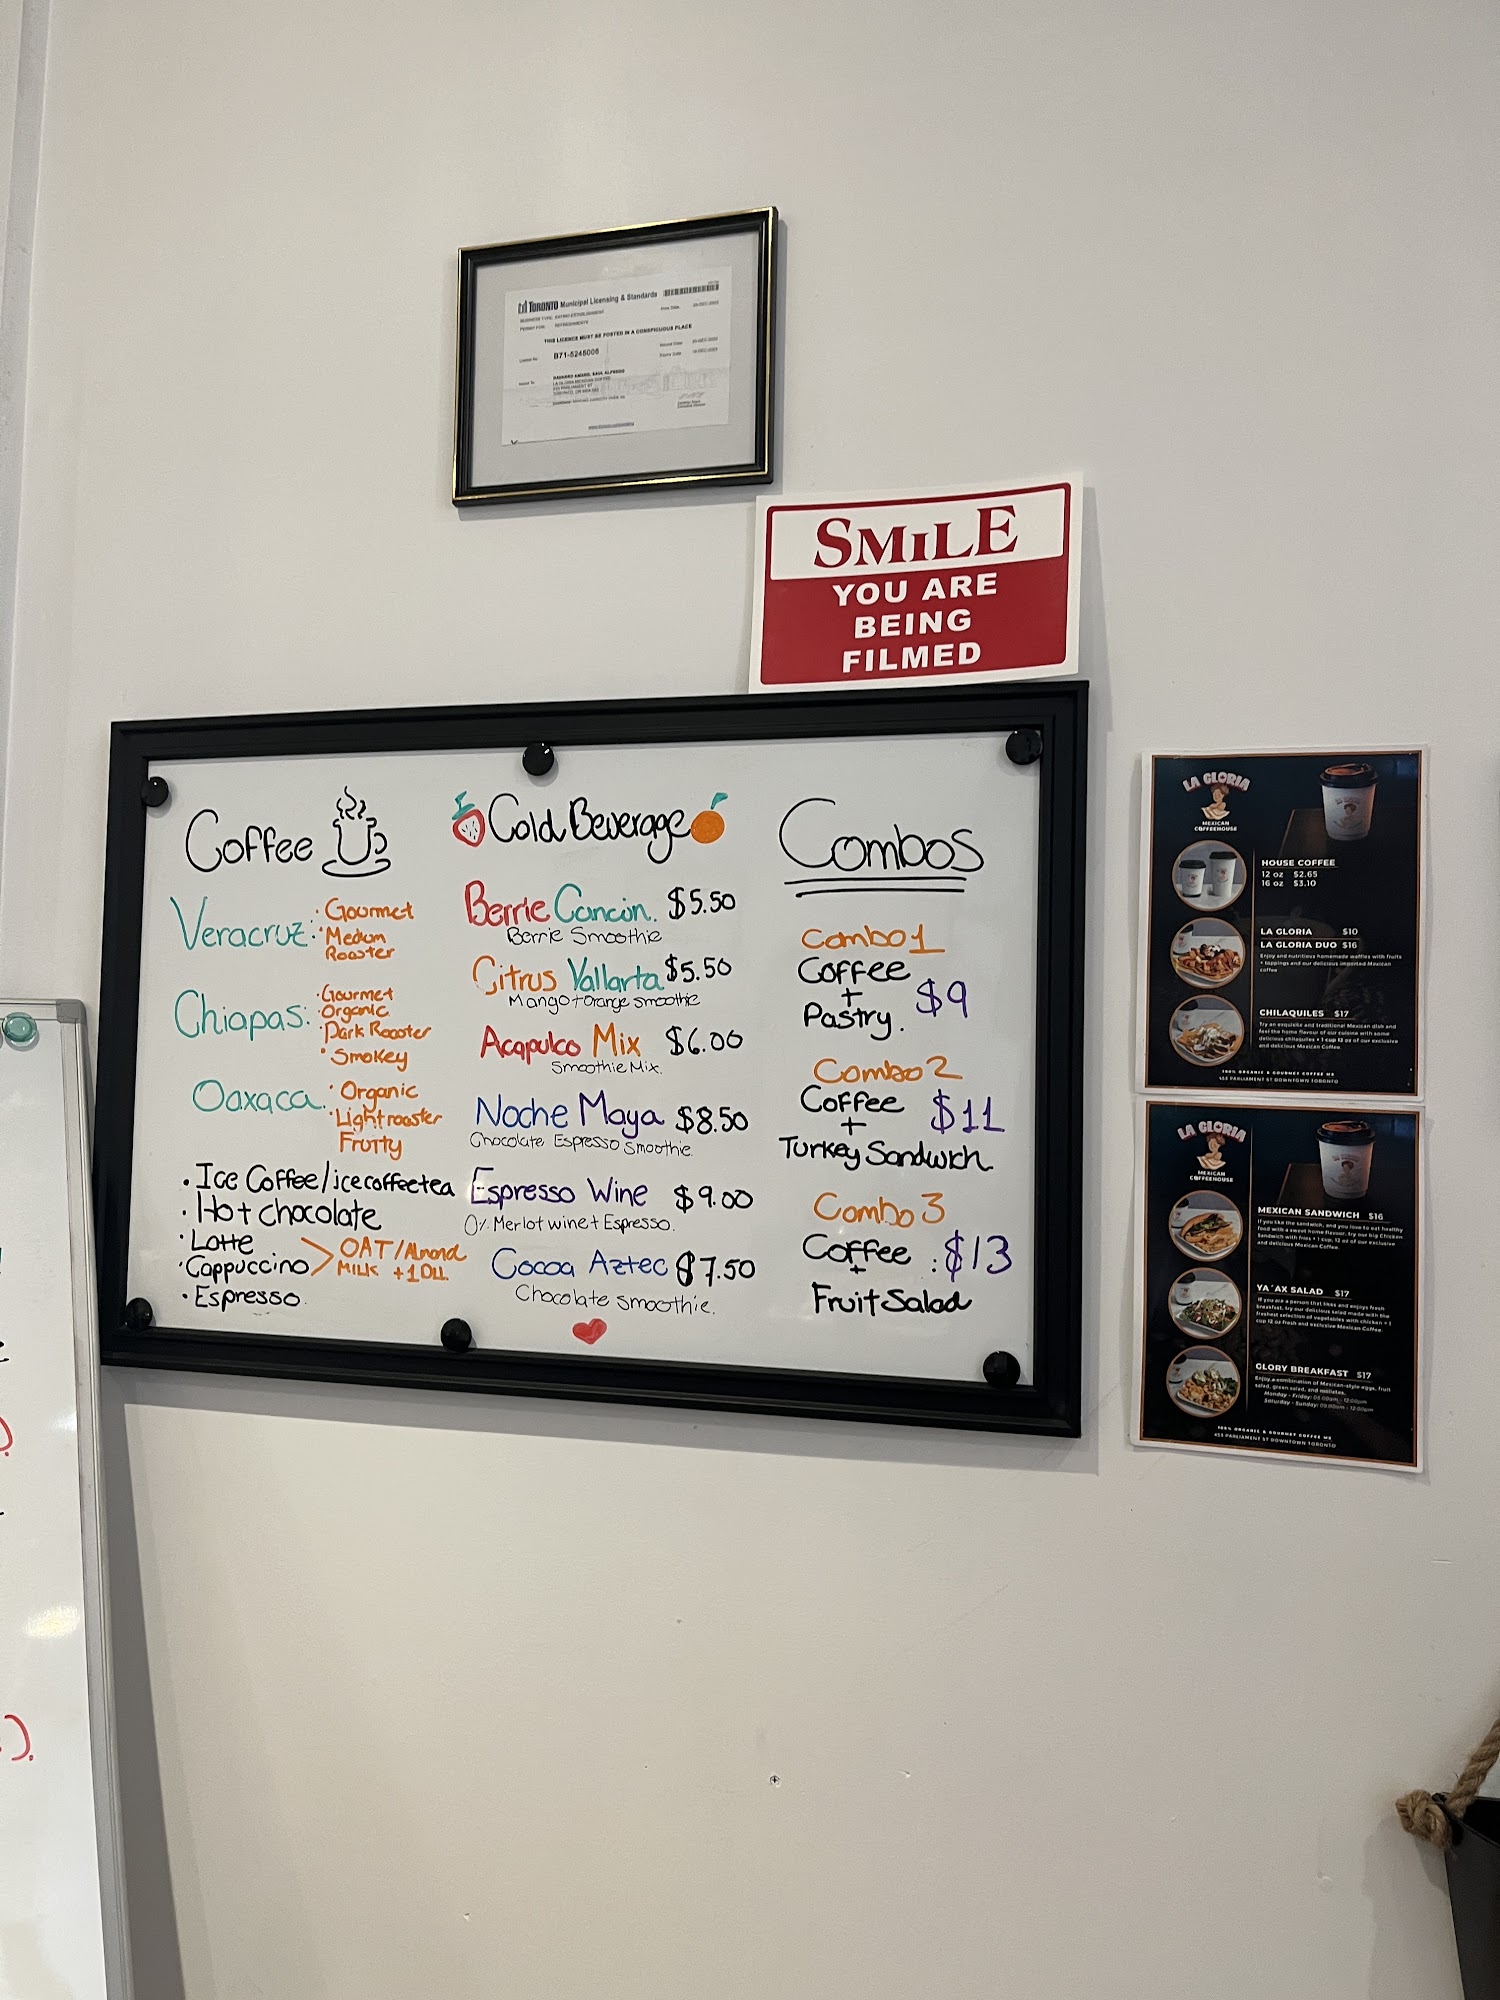 TORONTO Municipal Licensing & Standards
THIS LICENCE MUST BE POSTED IN A CONSPICUOUS PLACE
B71-5245006
SMiLE
YOU ARE
BEING
FILMED
Coffee
Veracruz:
· Gourmet
· Medium
Rooster
Chiapas:
· Gourmet
· Organic
· Dark Rooster
· Smokey
Oaxaca.
· Organic
· Light rooster
Frutty
· Ice Coffee/icecoffeetea
· Hot chocolate
· Latte
· Cappuccino
OAT/Almond
MILK +1 DLL
· Espresso.
Cold Beverage
Berrie Cancún. $5.50
Berrie Smoothie
Citrus Vallarta $5.50
Mango + Orange smoothie
Acapulco Mix $6.00
Smoothie Mix.
Noche Maya $8.50
Chocolate Espresso Smoothie.
Espresso Wine $9.00
0% Merlot wine + Espresso.
Cocoa Aztec $7.50
Chocolate smoothie.
Combos
Combo 1
Coffee
+
Pastry.
$9
Combo 2
Coffee
+
Turkey Sandwich
$11
Combo 3
Coffee
+
Fruit Salad
: $13
LA GLORIA
MEXICAN
COFFEEHOUSE
HOUSE COFFEE
12 oz $2.65
16 oz $3.10
LA GLORIA $10
LA GLORIA DUO $16
Enjoy and nutritious homemade waffles with fruits
+ toppings and our delicious imported Mexican
coffee
CHILAQUILES $17
Try an exquisite and traditional Mexican dish and
feel the home flavour of our cuisine with some
delicious chilaquiles + 1 cup 12 oz of our exclusive
and delicious Mexican Coffee.
100% ORGANIC & GOURMET COFFEE MX
453 PARLIAMENT ST DOWNTOWN TORONTO
LA GLORIA
MEXICAN
COFFEEHOUSE
MEXICAN SANDWICH $16
If you like the sandwich, and you love to eat healthy
food with a sweet home flavour, try our big Chicken
Sandwich with fries + 1 cup, 12 oz of our exclusive
and delicious Mexican Coffee.
YA´AX SALAD $17
If you are a person that likes and enjoys fresh
breakfast, try our delicious salad made with the
freshest selection of vegetables with chicken + 1
cup 12 oz fresh and exclusive Mexican Coffee.
GLORY BREAKFAST $17
Enjoy a combination of Mexican-style eggs, fruit
salad, green salad, and molletes.
Monday - Friday: 08:00am - 12:00pm
Saturday - Sunday: 09:00am - 12:00pm
100% ORGANIC & GOURMET COFFEE MX
453 PARLIAMENT ST DOWNTOWN TORONTO